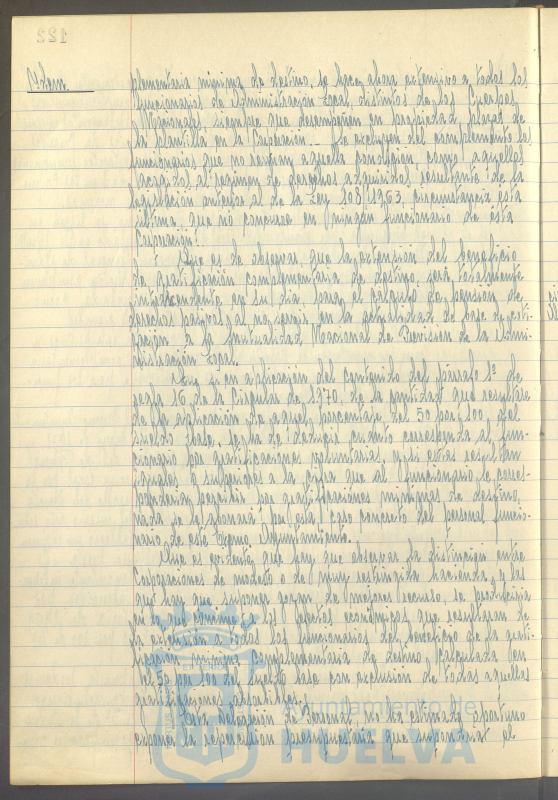 122
plementaria mínima de destino, se hace ahora extensivo a todos los
funcionarios de Administración Local, distintos de los Cuerpos
Nacionales, siempre que desempeñen en propiedad plazas de
la plantilla en la Corporación.- Se excluyen del complemento los
funcionarios que no reunan aquella condición, como aquellos
acogidos al regimen de derechos adquiridos resultante de la
legislación anterior al de la Ley 108/1963, circunstancia esta
última que no concurre en ningún funcionario de esta
Corporación.
Que es de observar, que la extensión del beneficio
de gratificación complementaria de destino, será totalmente
intrascendente en su día, para el cálculo de pensión de
derechos pasivos, al no servir, en la actualidad de base de coti-
zación a la Mutualidad Nacional de Previsión de la Admi-
nistración Local.
Que si en aplicación del contenido del párrafo 1º de
regla 16 de la Circular de 1970, de la cantidad que resultare
de la aplicación de aquel porcentaje del 50 por 100, del
sueldo base, se ha de deducir cuanto corresponda al fun-
cionario por gratificaciones voluntarias, y si estas resultan
iguales o superiores a la cifra que al funcionario le corres-
pondería percibir por gratificaciones mínimas de destino,
nada se le abonará por esta, caso concreto del personal funcio-
nario de este Excmo. Ayuntamiento.
Que es evidente que hay que observar la distinción entre
Corporaciones de modesto o de muy restringida hacienda, y las
que hay que suponer gozan de mejores recursos, se produciría
en lo que concierne a los efectos económicos que resultaran de
la extensión a todos los funcionarios del beneficio de la grati-
ficación mínima complementaria de destino, calculada en
el 50 por 100 del sueldo base con exclusión de todas aquellas
gratificaciones absorbibles.
Esta Delegación de Personal, no ha estimado oportuno
exponer la repercusión presupuestaria que supondría el
Ayuntamiento de
HUELVA